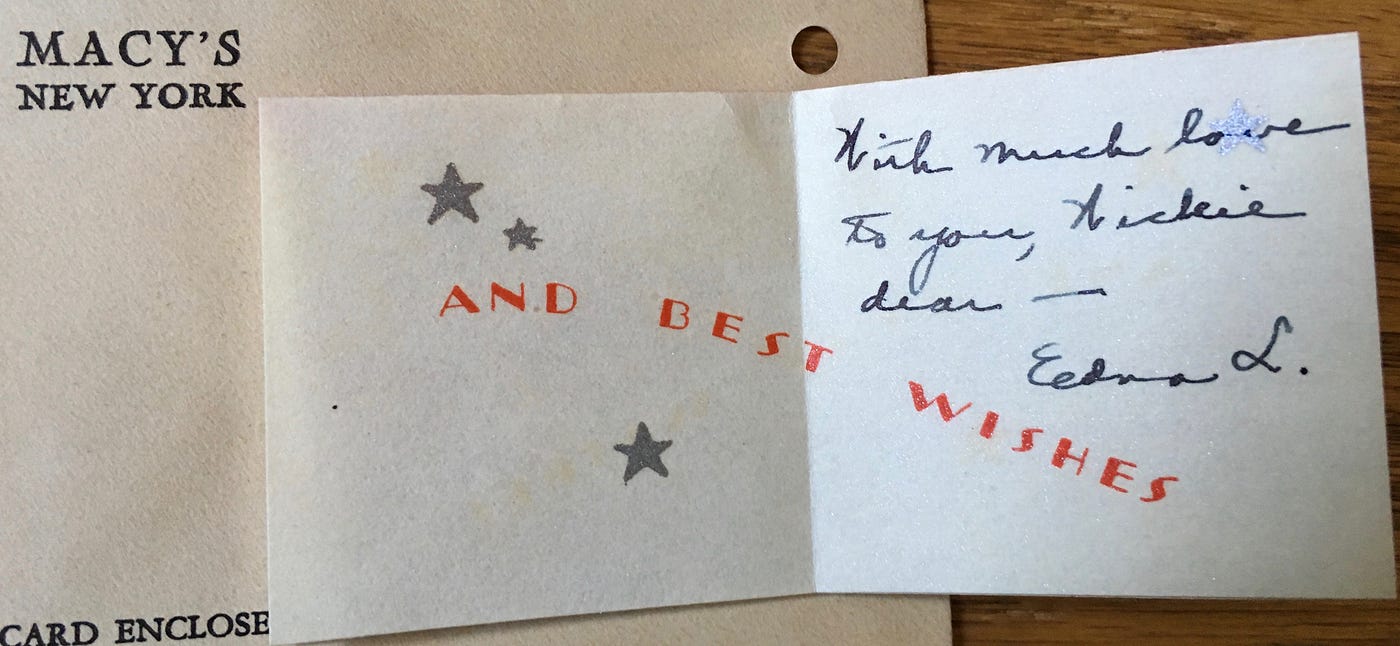 MACY'S
NEW YORK
AND BEST WISHES
With much love
to you, Nickie
dear —
Edna L.
CARD ENCLOSE